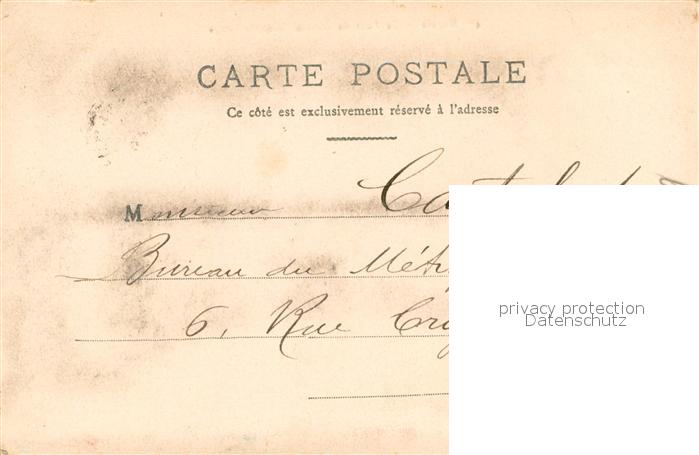 CARTE POSTALE
Ce côté est exclusivement réservé à l'adresse
Monsieur
Bureau du
6, Rue
privacy protection
Datenschutz